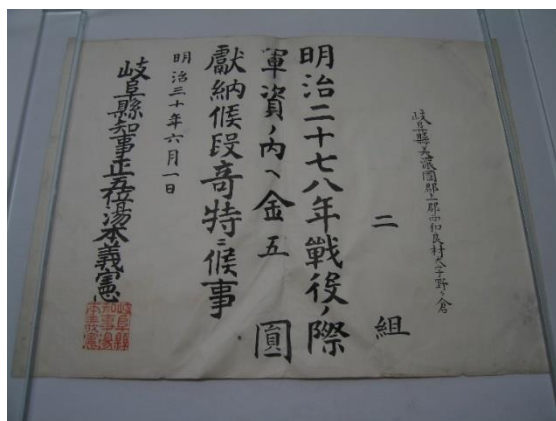 岐阜縣美濃國郡上郡西和良村大字野々倉
二組
明治二十七八年戰役ノ際
軍資ノ内ヘ金五圓
獻納候段竒特ニ候事
明治三十年六月一日
岐阜縣知事正五位湯本義憲
岐阜縣
知事湯
本義憲